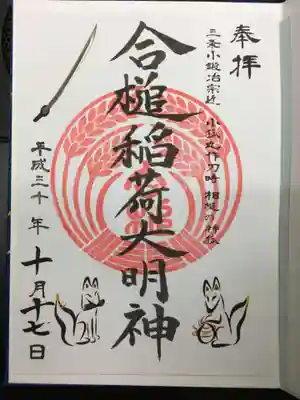 奉拝
三条小鍛冶宗近 小狐丸作刀時 相槌の神様
合槌稲荷大明神
平成三十年 十月十七日